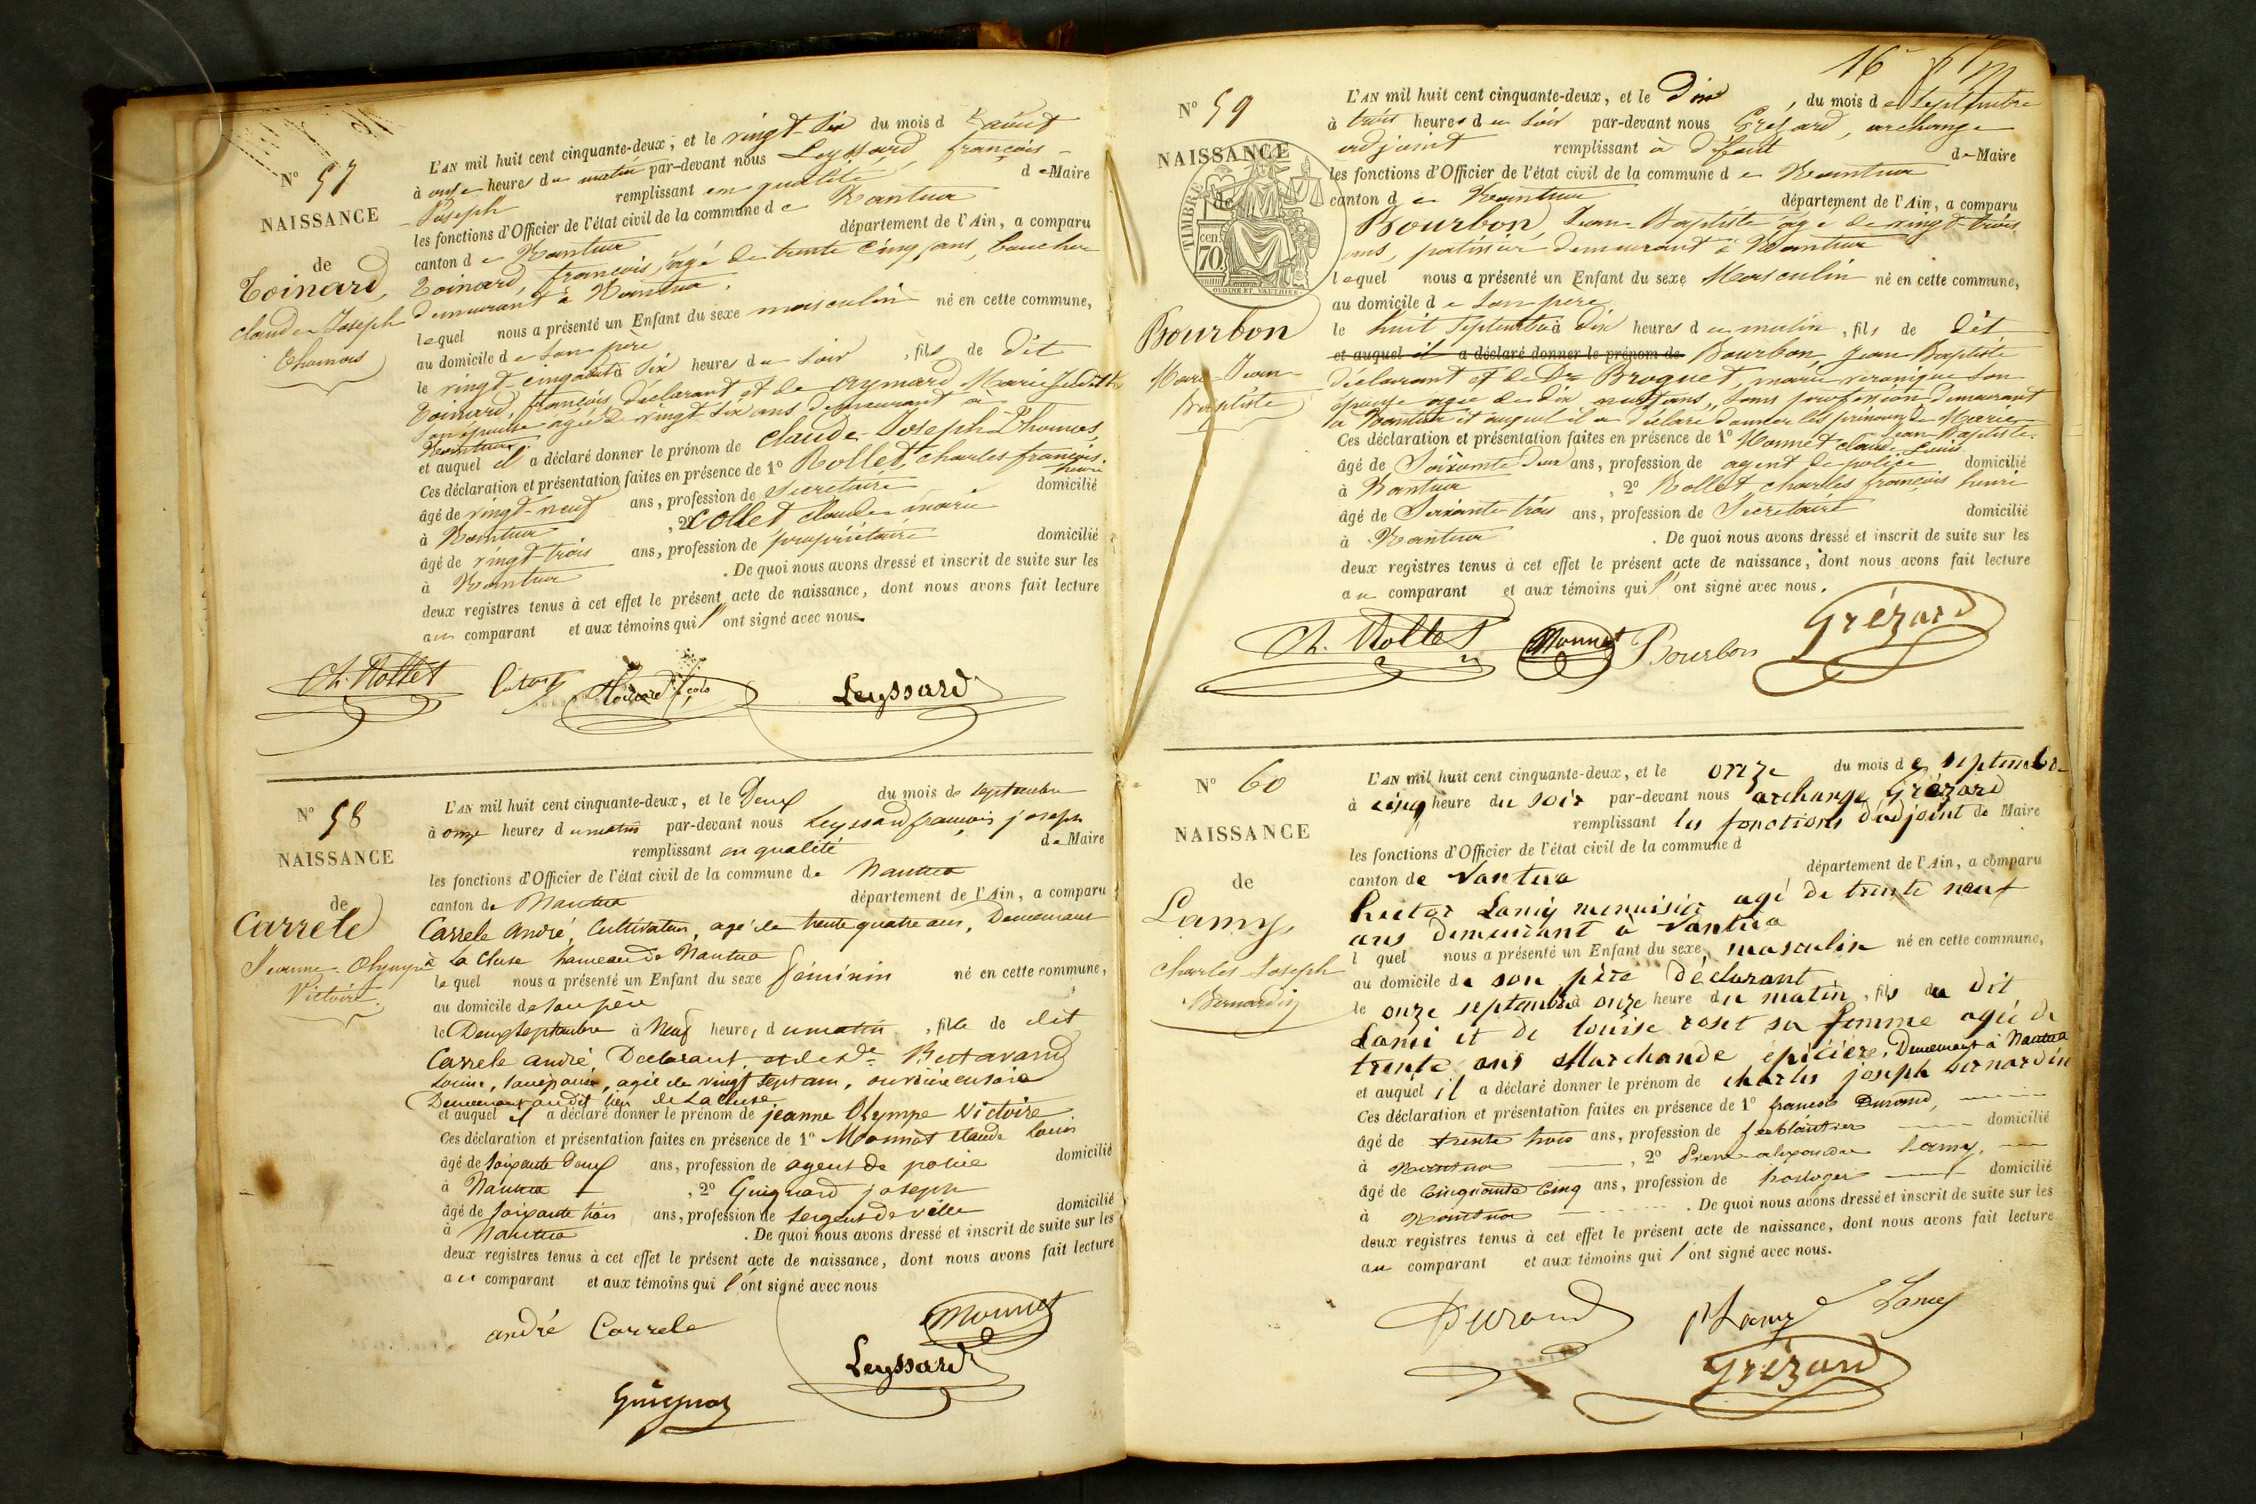 N° 57
NAISSANCE
de
Toinard,
claude Joseph
Thomas
L'AN mil huit cent cinquante-deux, et le vingt-six du mois d'aôut
à onze heures du matin par-devant nous Leyssard, françois
Joseph remplissant en qualité de Maire
les fonctions d'Officier de l'état civil de la commune de Nantua
canton de Nantua département de l'Ain, a comparu
Toinard, françois, agé de trente cinq ans, boucher
demeurant à Nantua.
lequel nous a présenté un Enfant du sexe masculin né en cette commune,
au domicile de son père
le vingt-cinq août à six heures du soir, fils de dit
Toinard, françois, déclarant et de Aymard, Marie Judith
son épouse agée de vingt six ans demeurant à
Nantua
et auquel il a déclaré donner le prénom de Claude-Joseph-Thomas,
Ces déclaration et présentation faites en présence de 1° Rollet, charles françois
henri
âgé de vingt-neuf ans, profession de secretaire domicilié
à Nantua, 2° Collet claude marie
âgé de vingt-trois ans, profession de propriétaire domicilié
à Nantua. De quoi nous avons dressé et inscrit de suite sur les
deux registres tenus à cet effet le présent acte de naissance, dont nous avons fait lecture
au comparant et aux témoins qui l'ont signé avec nous.
Ch. Rollet Leyssard
N° 58
NAISSANCE
de
Carrele
Jeanne-Olympe
Victoire.
L'AN mil huit cent cinquante-deux, et le Deux du mois de septembre
à onze heures du matin par-devant nous Leyssard françois joseph
remplissant en qualité de Maire
les fonctions d'Officier de l'état civil de la commune de Nantua
canton de Nantua département de l'Ain, a comparu
Carrele andré, Cultivateur, agé de trente quatre ans, Demeurant
à La Cluse hameau de Nantua
lequel nous a présenté un Enfant du sexe féminin né en cette commune,
au domicile de son père
le Deux septembre à Neuf heures du matin, fille de dit
Carrele andré, Declarant, et de De
Louise, son épouse, agée de vingt sept ans, ouvrière en soie
Demeurant au dit lieu de La Cluse
et auquel il a déclaré donner le prénom de jeanne Olympe Victoire
Ces déclaration et présentation faites en présence de 1° Monnet Claude Louis
âgé de soixante Deux ans, profession de agent de police domicilié
à Nantua, 2° Guignard joseph
âgé de soixante trois ans, profession de sergent de ville domicilié
à Nantua. De quoi nous avons dressé et inscrit de suite sur les
deux registres tenus à cet effet le présent acte de naissance, dont nous avons fait lecture
au comparant et aux témoins qui l'ont signé avec nous
andré Carrele Monnet
Leyssard
16
N° 59
NAISSANCE
de
TIMBRE
cen.
70
Bourbon
Marie-Jean-
Baptiste
L'AN mil huit cent cinquante-deux, et le dix, du mois de septembre
à trois heures du soir par-devant nous Grézard, archange
adjoint remplissant à défaut de Maire
les fonctions d'Officier de l'état civil de la commune de Nantua
canton de Nantua département de l'Ain, a comparu
Bourbon, Jean-Baptiste agé de vingt-trois
ans, patissier demeurant à Nantua
lequel nous a présenté un Enfant du sexe Masculin né en cette commune,
au domicile de son père
le huit septembre à dix heures du matin, fils de dit
et auquel il a déclaré donner le prénom de Bourbon, Jean Baptiste
déclarant et de De Broquet, marie veronique son
épouse agée de dix neuf ans, sans profession demeurant
à Nantua et auquel il a déclaré donner les prénoms de Marie-
Jean-Baptiste.
Ces déclaration et présentation faites en présence de 1° Monnet claude Louis
âgé de soixante deux ans, profession de agent de police domicilié
à Nantua, 2° Rollet charles françois henri
âgé de soixante trois ans, profession de secretaire domicilié
à Nantua. De quoi nous avons dressé et inscrit de suite sur les
deux registres tenus à cet effet le présent acte de naissance, dont nous avons fait lecture
au comparant et aux témoins qui l'ont signé avec nous.
Ch. Rollet Monnet Bourbon Grézard
N° 60
NAISSANCE
de
Lamy,
Charles Joseph
Bernardin
L'AN mil huit cent cinquante-deux, et le onze du mois de septembre
à cinq heure du soir par-devant nous archange Grézard
remplissant les fonctions d'adjoint de Maire
les fonctions d'Officier de l'état civil de la commune d
canton de Nantua département de l'Ain, a comparu
hector Lamy menuisier agé de trente neuf
ans demeurant à Nantua
l quel nous a présenté un Enfant du sexe masculin né en cette commune,
au domicile de son père déclarant
le onze septembre à onze heure du matin, fils du dit
Lami et de louise roset sa femme agée de
trente ans Marchande épicière. Demeurant à Nantua
et auquel il a déclaré donner le prénom de charles joseph bernardin
Ces déclaration et présentation faites en présence de 1° francois Durand,
âgé de trente trois ans, profession de ferblantier domicilié
à Nantua, 2° Pierre alexandre Lamy,
âgé de Cinquante Cinq ans, profession de horloger domicilié
à Nantua. De quoi nous avons dressé et inscrit de suite sur les
deux registres tenus à cet effet le présent acte de naissance, dont nous avons fait lecture
au comparant et aux témoins qui l'ont signé avec nous.
Durand Lamy Lamy
Grézard